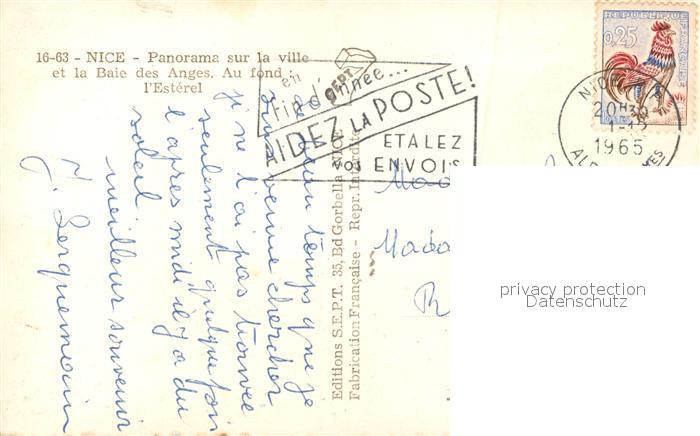 16-63 - NICE - Panorama sur la ville
et la Baie des Anges. Au fond :
l'Estérel
en
fin d'année...
AIDEZ LA POSTE!
ETALEZ
VOS ENVOIS
SEPT
REPUBLIQUE FRANÇAISE
0,25
POSTES
NICE
20H30
1-12
1965
Editions S.E.P.T. 35, Bd Gorbella NICE
Fabrication Française - Repr. Interdite
temps que je
venue chercher
je ne l'ai pas trouvée
seulement quelque fois
l'après midi il y a du
soleil
meilleur souvenir
Mada
privacy protection
Datenschutz